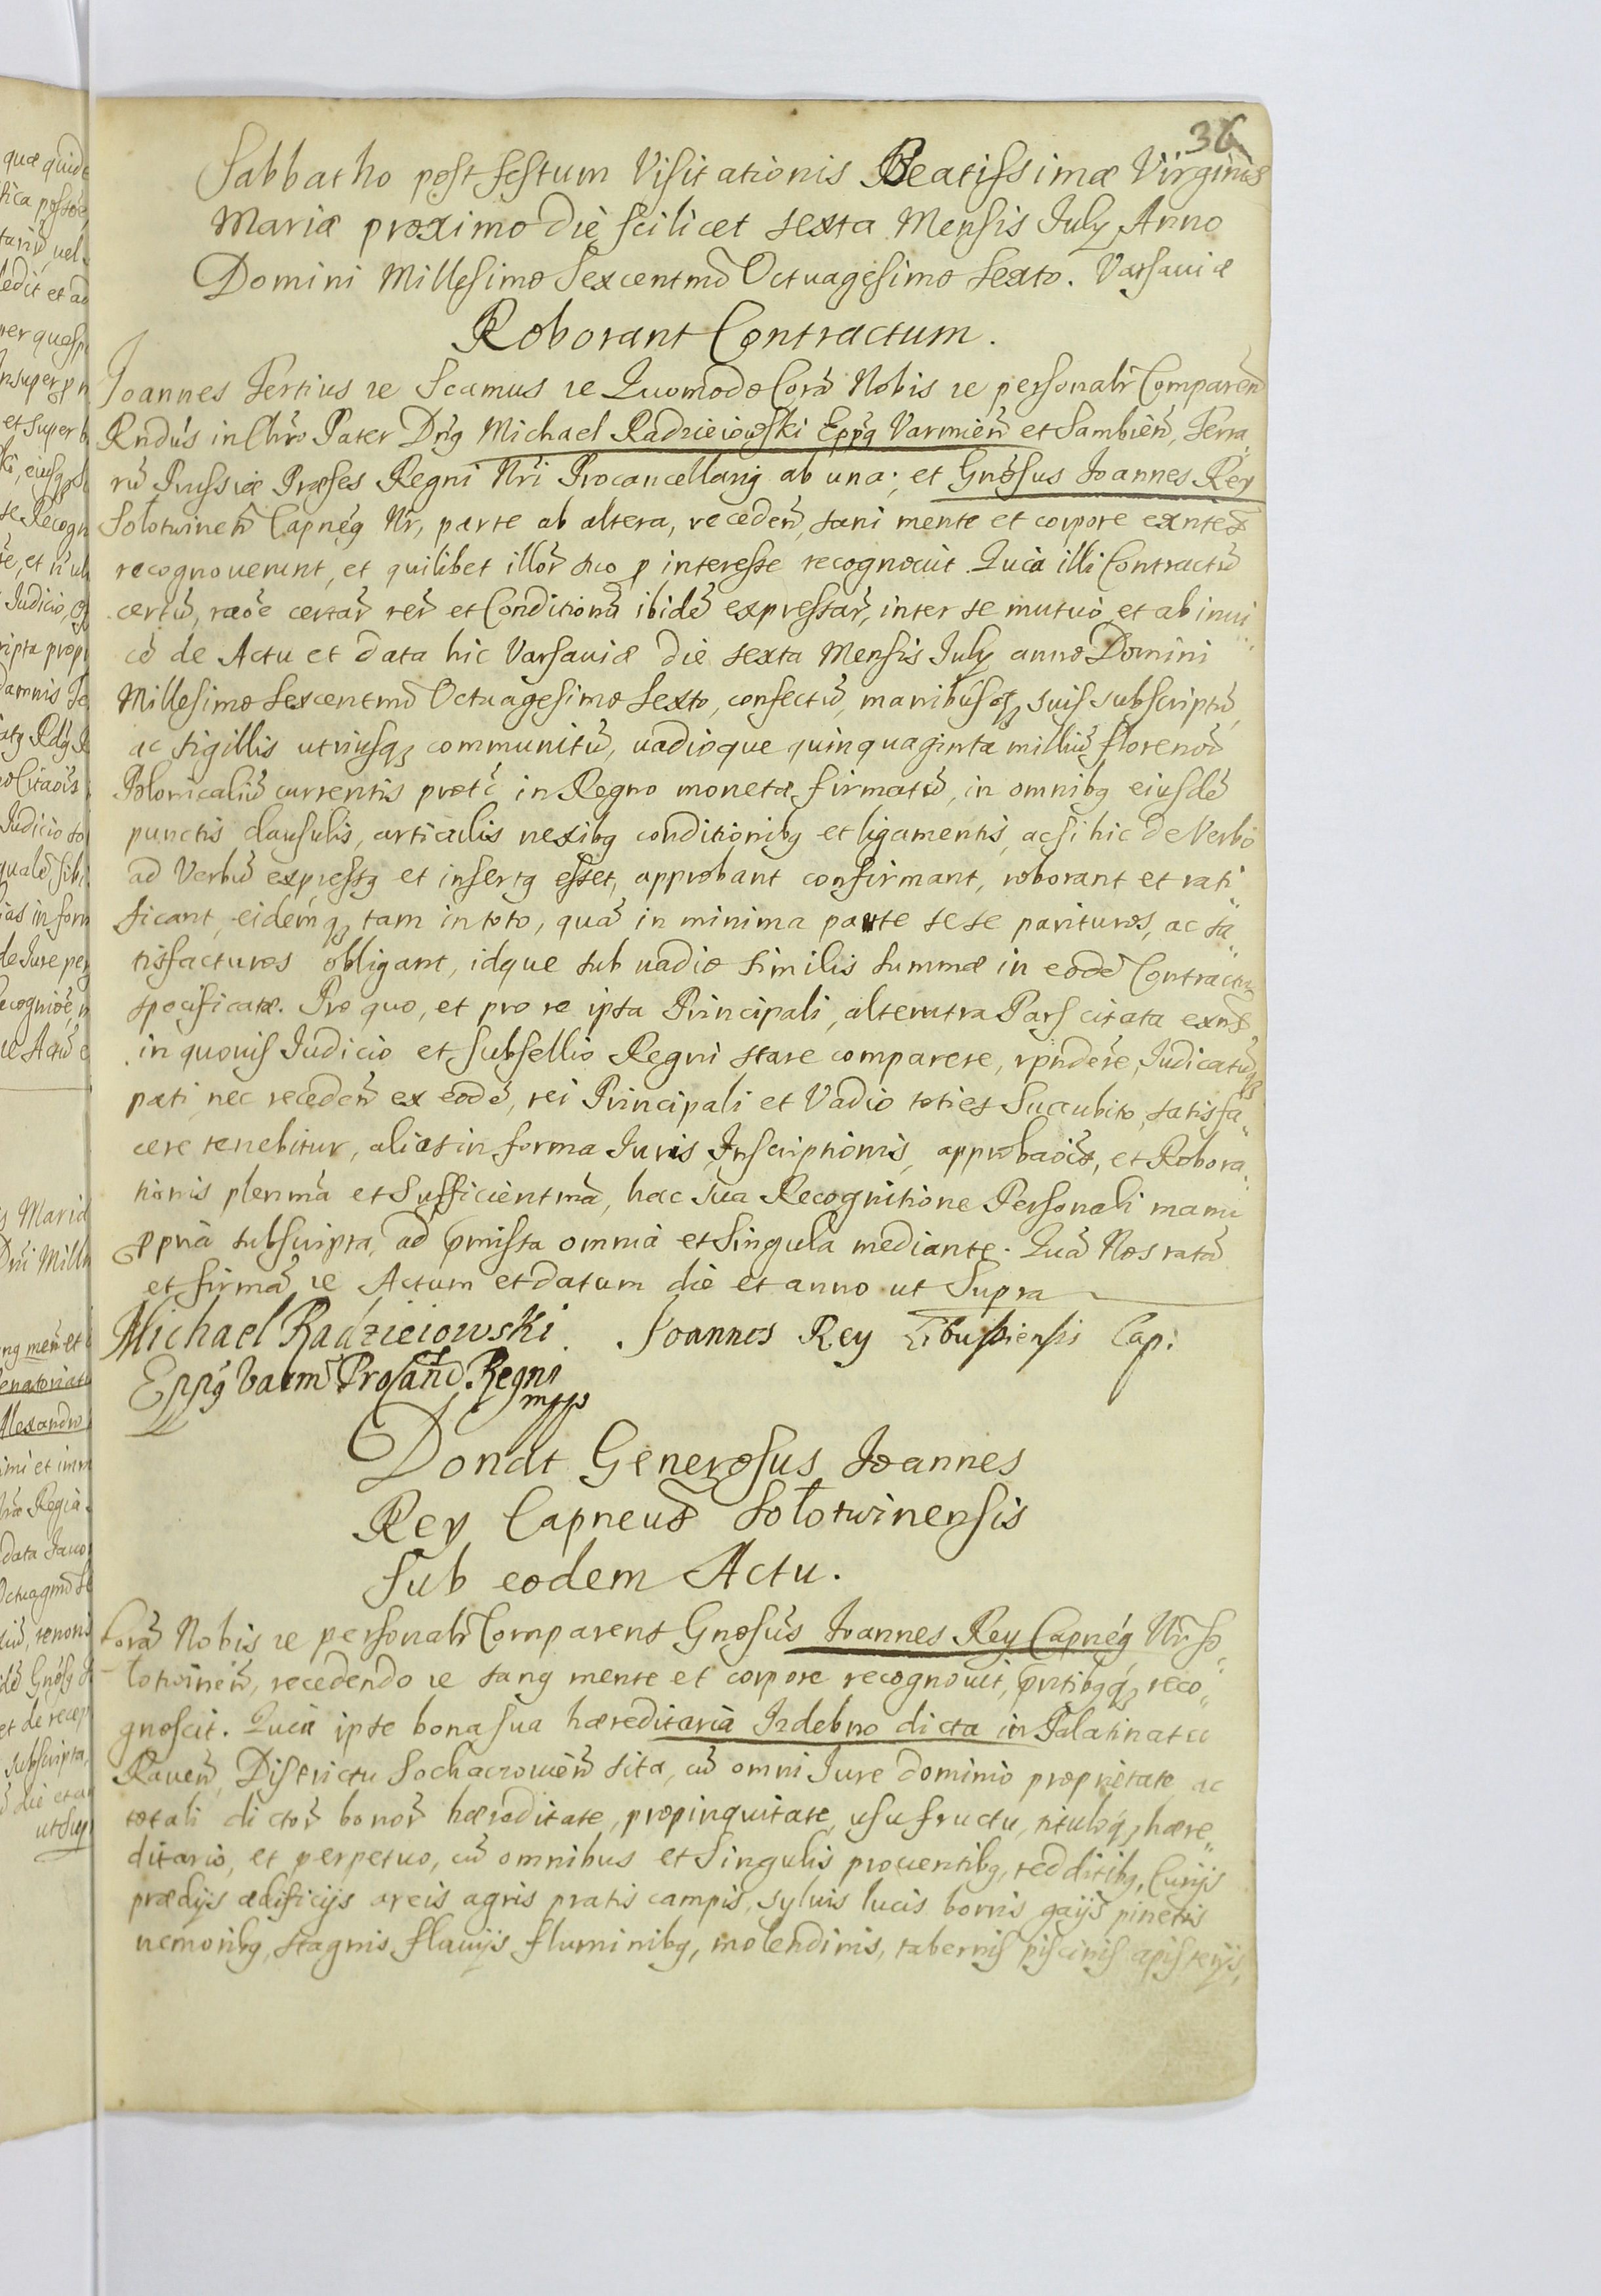 36
Sabbatho post festum Visitationis Beatissimæ Virginis
Mariæ proximo die scilicet sexta Mensis July Anno
Domini Millesimo Sexcentmo Octuagesimo Sexto. Varsauiæ
Roborant Contractum.
Joannes Tertius &c Scamus &c Quomodo Corã Nobis &c personalr Comparen
Rndus in Chro Pater Dnꝯ Michael Radzieiowski Eppꝯ Varmien et Sambien, Terra
rũ Prussiæ Præses Regni Nri Procancellariꝯ ab una; et Gnosus Joannes Rey
Sołotwinen Capneꝯ Nr, parte ab altera, receden, sani mente et corpore exntes
recognouerunt, et quilibet illor suo ꝑ interesse recognouit. Quia illi Contractũ
certũ, raoe certar rer et Conditionũ ibidẽ expressar, inter se mutuo et ab inui
cẽ de Actu et data hic Varsauiæ die sexta Mensis July anno Domini
Millesimo Sexcentmo Octuagesimo Sexto, confectũ, manibusqꝫ suis subscriptũ,
ac sigillis utriusqꝫ communitũ, uadioque quinquaginta milliũ florenor
Polonicaliũ currentis prætc in Regno monetæ firmatũ, in omnibꝯ eiusdẽ
punctis clausulis, articulis nexibꝯ conditionibꝯ et ligamentis, ac si hic de Verbo
ad Verbũ expressꝯ et insertꝯ esset, approbant confirmant, roborant et rati
ficant, eidemqꝫ tam in toto, quã in minima parte sese parituros, ac sa
tisfacturos obligant, idque sub uadio similis summæ in eodẽ Contractu
specificatæ. Pro quo, et pro re ipsa Principali, alterutra Pars citata exns
in quouis Judicio et subsellio Regni stare comparere, rpndere, Judicatũqꝫ
pati nec receden ex eodẽ, rei Principali et Vadio toties Succubito, satisfa
cere tenebitur, alias in forma Juris Inscriptionis, approbaois, et Robora
tionis plenmã et Sufficientmã, hac sua Recognitione Personali manu
ꝓpria subscripta, ad pmissa omnia et Singula mediante. Quã Nos ratã
et firmã &c Actum et datum die et anno ut Supra
Michael Radzieiowski. Joannes Rey Libusiensis Cap:
Eppꝯ Varm Procand. Regni
mpp
Donat Generosus Joannes
Rey Capneus Sołotwinensis
Sub eodem Actu.
Corã Nobis &c personalr Comparens Gnosus Joannes Rey Capneꝯ Nr So
łotwinen, recedendo &c sanꝯ mente et corpore recognouit, pntibꝯqꝫ reco
gnoscit. Quia ipse bona sua hæreditaria Izdebno dicta in Palatinatu
Rauen, Districtu Sochaczouien sita, cũ omni Jure dominio proprietate ac
totali dictor bonor hæreditate, propinquitate, usufructu, tituloqꝫ hære
ditario, et perpetuo, cũ omnibus et Singulis prouentibꝯ, redditibꝯ, Curijs
prædijs ædificijs areis agris pratis campis, syluis lucis borris gaijs pinetis
nemoribꝯ, stagnis fluuijs fluminibꝯ, molendinis, tabernis piscinis apisterijs,